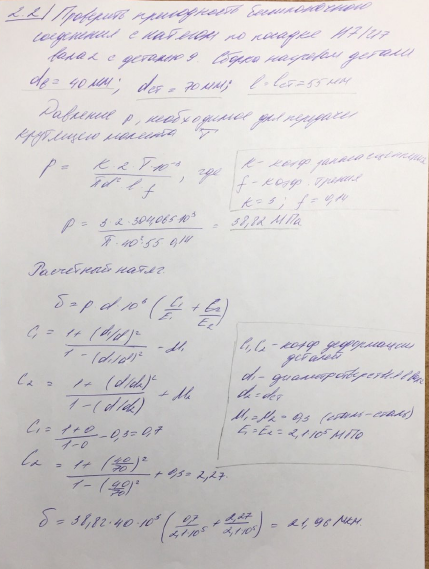 2.2) Проверить пригодность бесшпоночного
соединения с натягом по посадке H7/u7
вала 2 с деталью 9. Сборка нагревом детали
dв = 40 мм; dст = 70 мм; l = lст = 55 мм
Давление p, необходимое для передачи
крутящего момента T
P = K·2·T·10³ / πd²·l·f, где
K - коэф запаса сцепления
f - коэф. трения
K = 3; f = 0,14
p = 3·2·304,065·10³ / π·40²·55·0,14 = 38,82 МПа
Расчётный натяг
δ = p·d·10³ (C₁/E₁ + C₂/E₂)
C₁ = 1 + (d₁/d)² / 1 - (d₁/d)² - μ₁
C₂ = 1 + (d/d₂)² / 1 - (d/d₂)² + μ₂
C₁ = 1+0 / 1-0 - 0,3 = 0,7
C₂ = 1 + (40/70)² / 1 - (40/70)² + 0,3 = 2,27
C₁, C₂ - коэф деформации
деталей
d₁ - диаметр отверстия в вале
d₂ = dст
μ₁ = μ₂ = 0,3 (сталь-сталь)
E₁ = E₂ = 2,1·10⁵ МПа
δ = 38,82·40·10³ (0,7 / 2,1·10⁵ + 2,27 / 2,1·10⁵) = 21,96 мкм